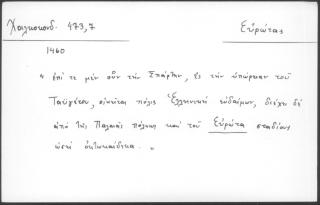 Χαλκοκονδ. 473,7 Εὐρώτας
1460
" ἐπί τε μὲν οὖν τὴν Σπάρτην, ἐς τὴν ὑπώρειαν τοῦ
Ταϋγέτου, οἰκεῖται πόλις Ἑλληνικὴ εὐδαίμων, διέχει δὲ
ἀπὸ τῆς Παλαιᾶς πόλεως καὶ τοῦ Εὐρώτα σταδίους
ὡσεὶ ὀκτωκαίδεκα. "